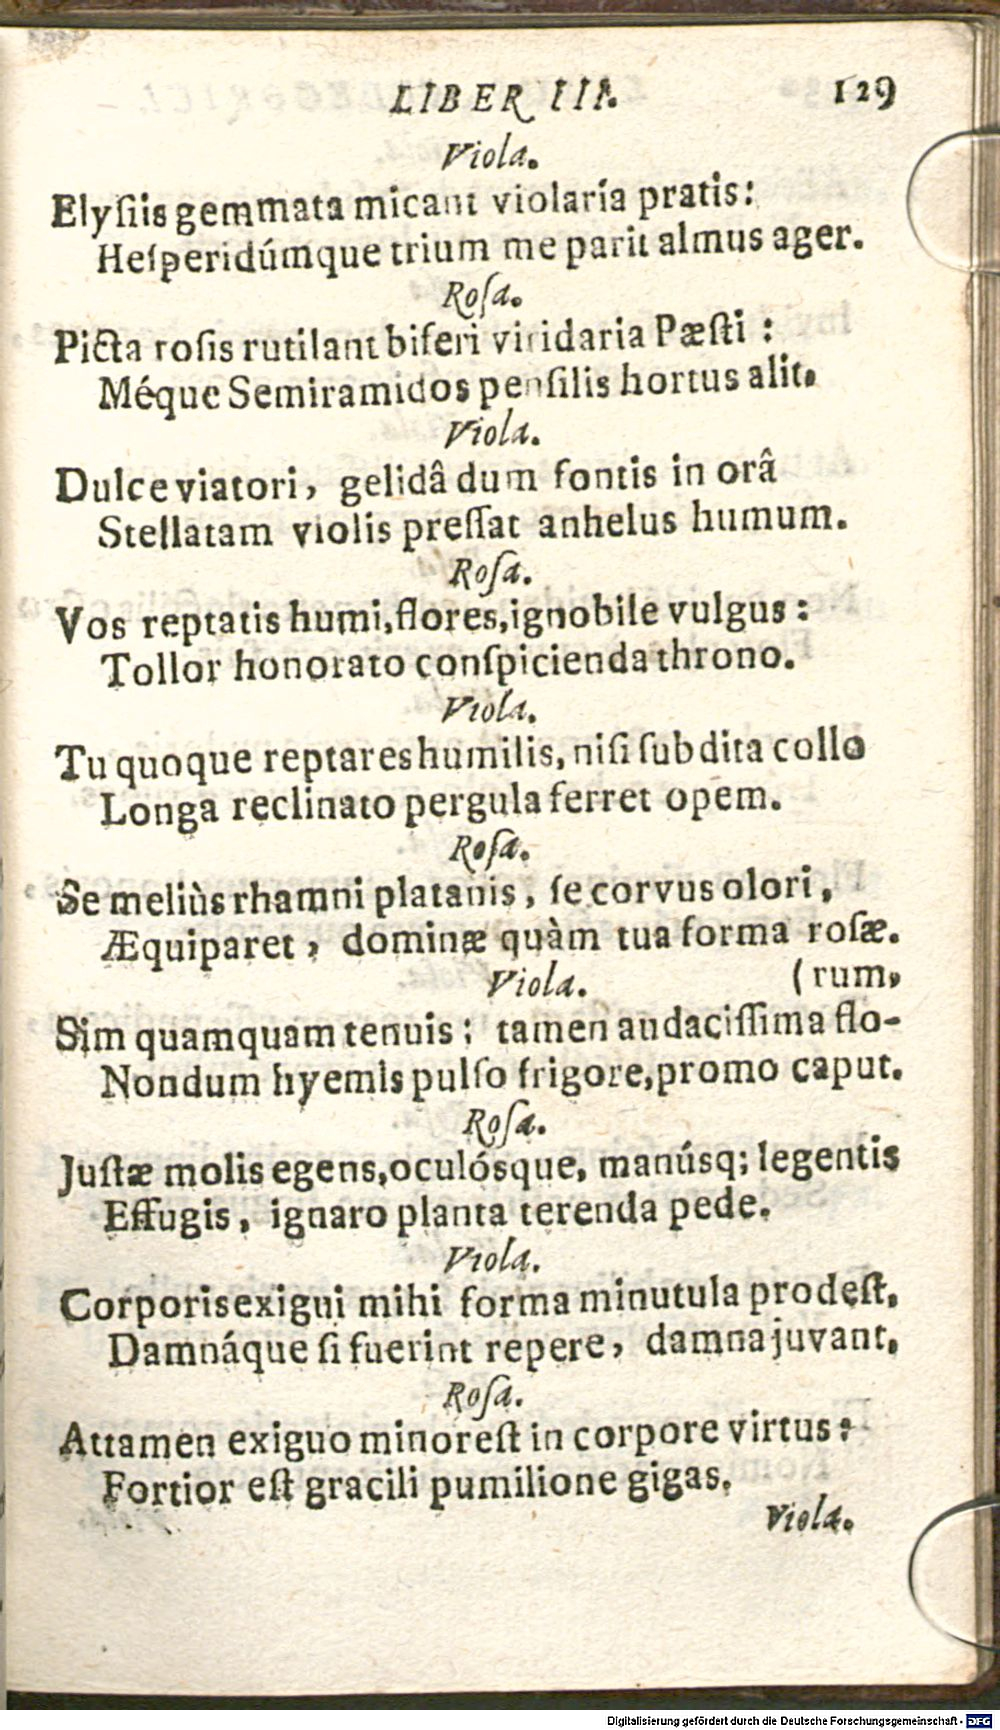 LIBER III. 129
Viola.
Elyſiis gemmata micant violaria pratis:
Heſperidúmque trium me parit almus ager.
Roſa.
Picta roſis rutilant biferi viridaria Pæſti :
Méque Semiramidos penſilis hortus alit.
Viola.
Dulce viatori, gelidâ dum fontis in orâ
Stellatam violis preſſat anhelus humum.
Roſa.
Vos reptatis humi, flores, ignobile vulgus :
Tollor honorato conſpicienda throno.
Viola.
Tu quoque reptares humilis, niſi ſubdita collo
Longa reclinato pergula ferret opem.
Roſa.
Se meliùs rhamni platanis, ſe corvus olori,
Æquiparet, dominæ quàm tua forma roſæ.
Viola. (rum,
Sim quamquam tenuis; tamen audaciſſima flo-
Nondum hyemis pulſo frigore, promo caput.
Roſa.
Juſtæ molis egens, oculóſque, manúsq; legentis
Effugis, ignaro planta terenda pede.
Viola.
Corporis exigui mihi forma minutula prodeſt,
Damnáque ſi fuerint repere, damna juvant.
Roſa.
Attamen exiguo minor eſt in corpore virtus:
Fortior eſt gracili pumilione gigas.
Viola.
Digitalisierung gefördert durch die Deutsche Forschungsgemeinschaft - DFG